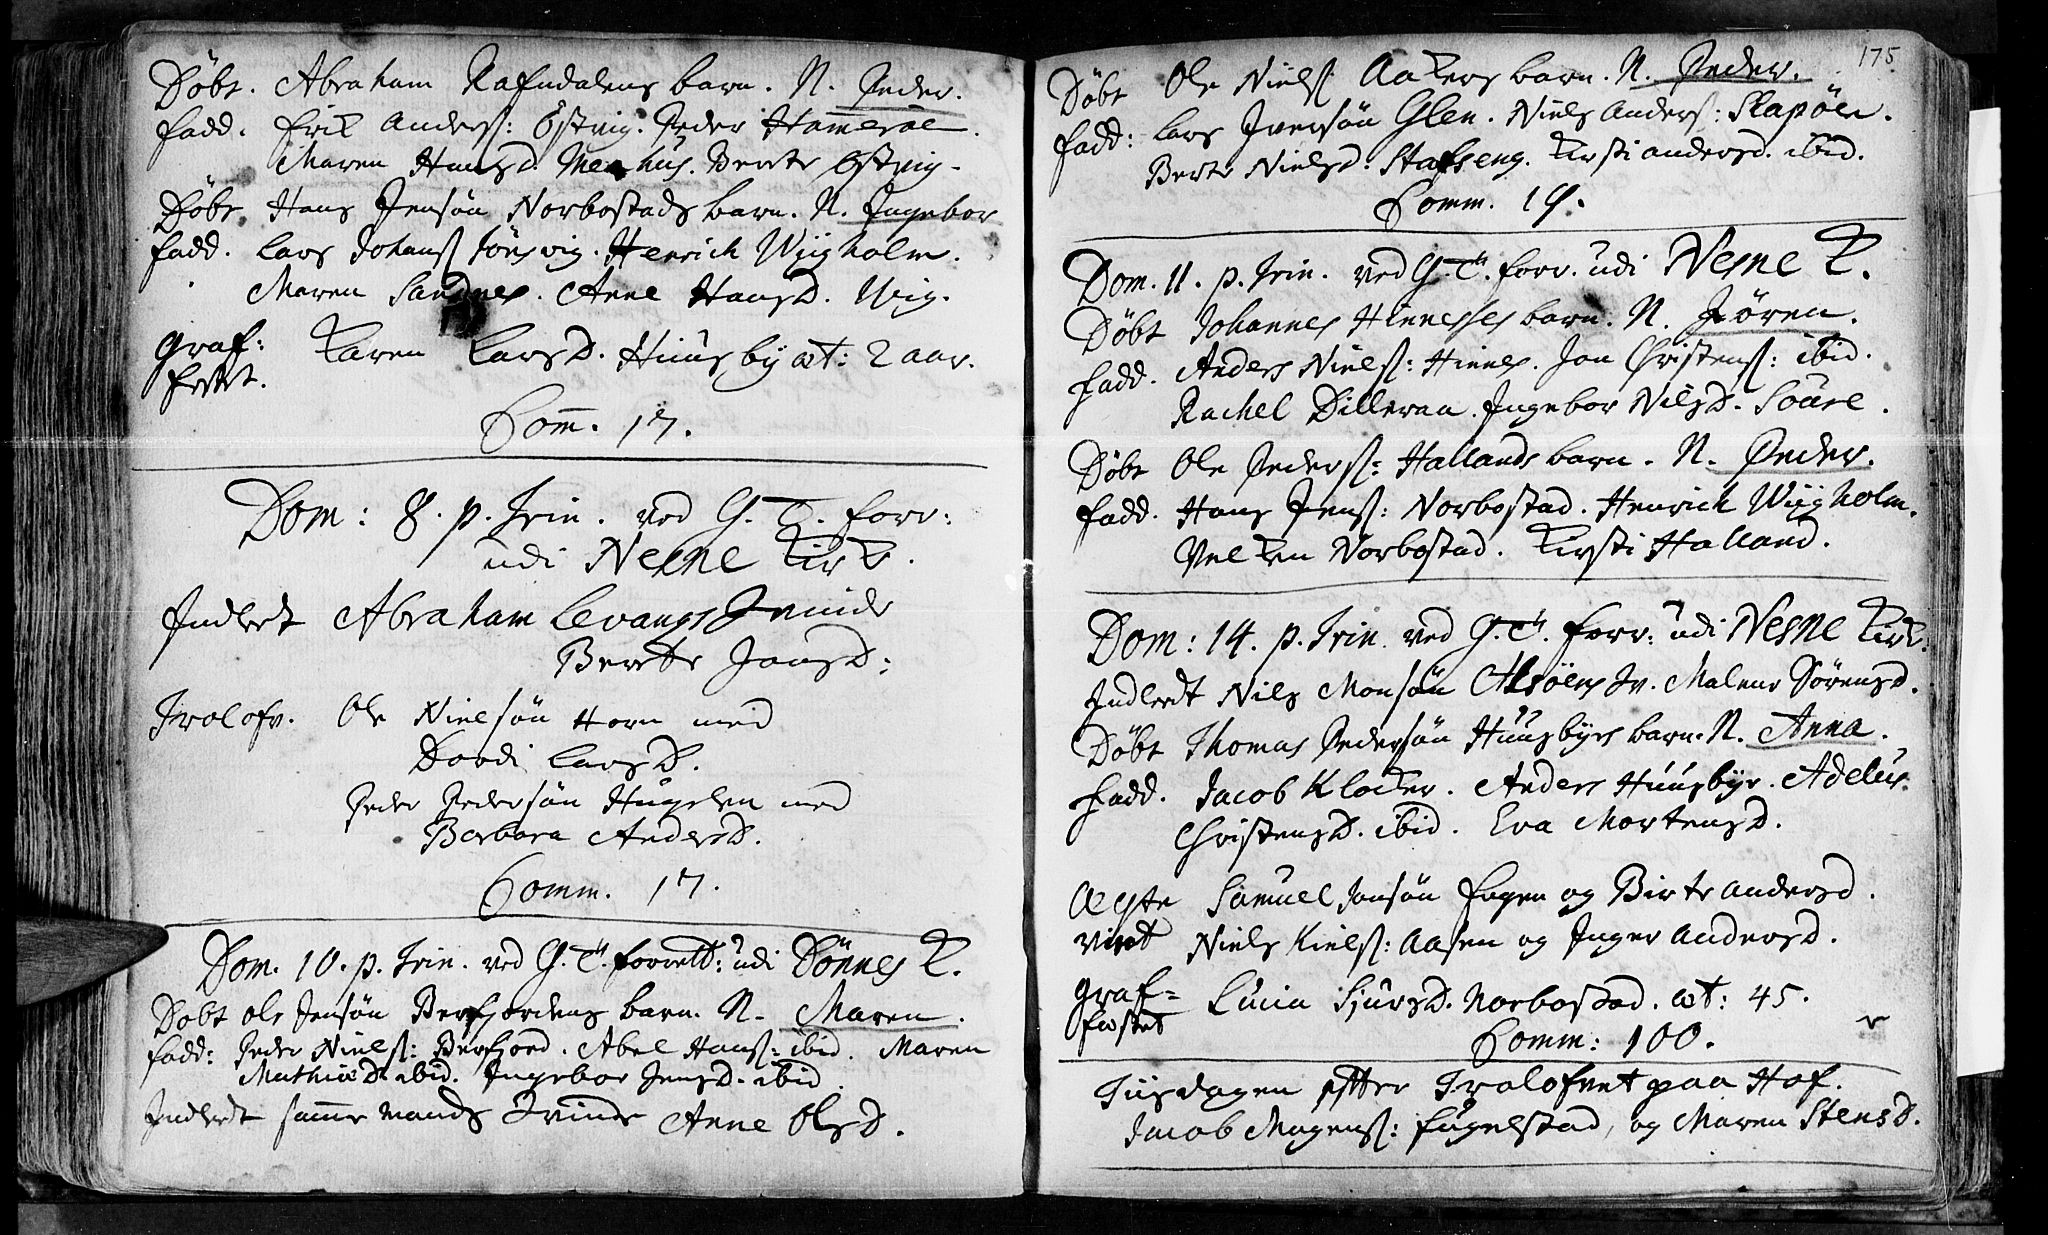 Døbt. Abraham Rafndalens barn. N. Peder.
fadd. Erik Anders: Østvig. Peder Hammerøe.
Maren Hansd. Meehus. Berte Østvig.
Døbt Hans Jensøn Norbostads barn. N. Ingebor
fadd. Lars Johans: Høresvig. Henrich Wiigholm.
Maren Sandnes. Anne Hansd. Wig.
Graf: Karen Larsd. Huusby æt: 2 aar.
festet.
Comm. 17.
Dom: 8. p. Trin. ved G. T. forr:
udi Nesne Kirk.
Indledt Abraham Levangs Qvinde
Berete Jonsd:
Trolofv. Ole Nielsøn Horn med
Dordi Larsd.
Peder Pedersøn Hugelen med
Barbara Andersd.
Comm. 17.
Dom. 10. p. Trin. ved G. T. forrett: udi Dønnes K.
Døbt Ole Jensøn Berfjordens barn. N. Maren.
fadd: Peder Niels: Berfjord. Abel Hans: ibid. Maren
Mathiæd. ibid. Ingebor Jensd. ibid.
Indledt samme mands Qvinde Anne Olsd.
175
Døbt Ole Niels: Aakers barn. N. Peder.
fadd: Lars Iversøn Glen. Niels Anders: Skapøen.
Berte Nielsd. Stafseng. Kirsti Andersd. ibid.
Comm. 19.
Dom. 11. p. Trin. ved G. T. forr. udi Nesne K.
Døbt Johannes Hinnesses barn. N. Jøren.
fadd. Anders Niels: Hinnes. Jon Christens: ibid.
Rachel Dilleraa. Ingebor Nilsd. Soure.
Døbt Ole Peders: Hallands barn. N. Peder.
fadd. Hans Jens: Norbostad. Henrich Wiigholm.
Velken Norbostad. Kirsti Halland.
Dom: 14. p. Trin. ved G. T. forr: udi Nesne Kirk:
Indledt Nils Monsøn Alsøens Qv. Malene Sørensd.
Døbt Thomas Pedersøn Huusbyes barn. N. Anna.
fadd. Jacob Klocker. Anders Huusbye. Adelus
Christensd. ibid. Eva Mortensd.
Ægte Samuel Jonsøn Fagen og Birte Andersd.
viet Niels Kiels: Aasen og Inger Andersd.
Graf= Lucia Sjursd. Norbostad. æt: 45.
festet
Comm: 100.
Tiisdagen effter Trolofvet paa Hof.
Jacob Mogens: Fugelstad, og Maren Stensd.